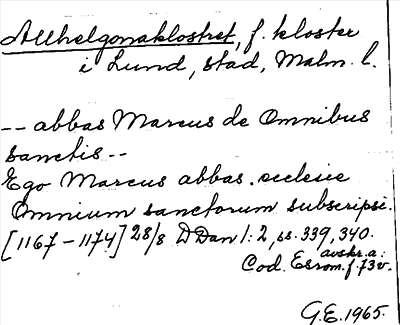 Allhelgonaklostret, f. kloster
i Lund, stad, Malm. l.
-- abbas Marcus de Omnibus
sanctis --
Ego Marcus abbas ecclesie
Omnium sanctorum subscripsi.
[1167-1174] 28/8 DDan 1:2, ss. 339, 340.
avskr. a:
Cod. Esrom. f. 73v.
G.E. 1965.